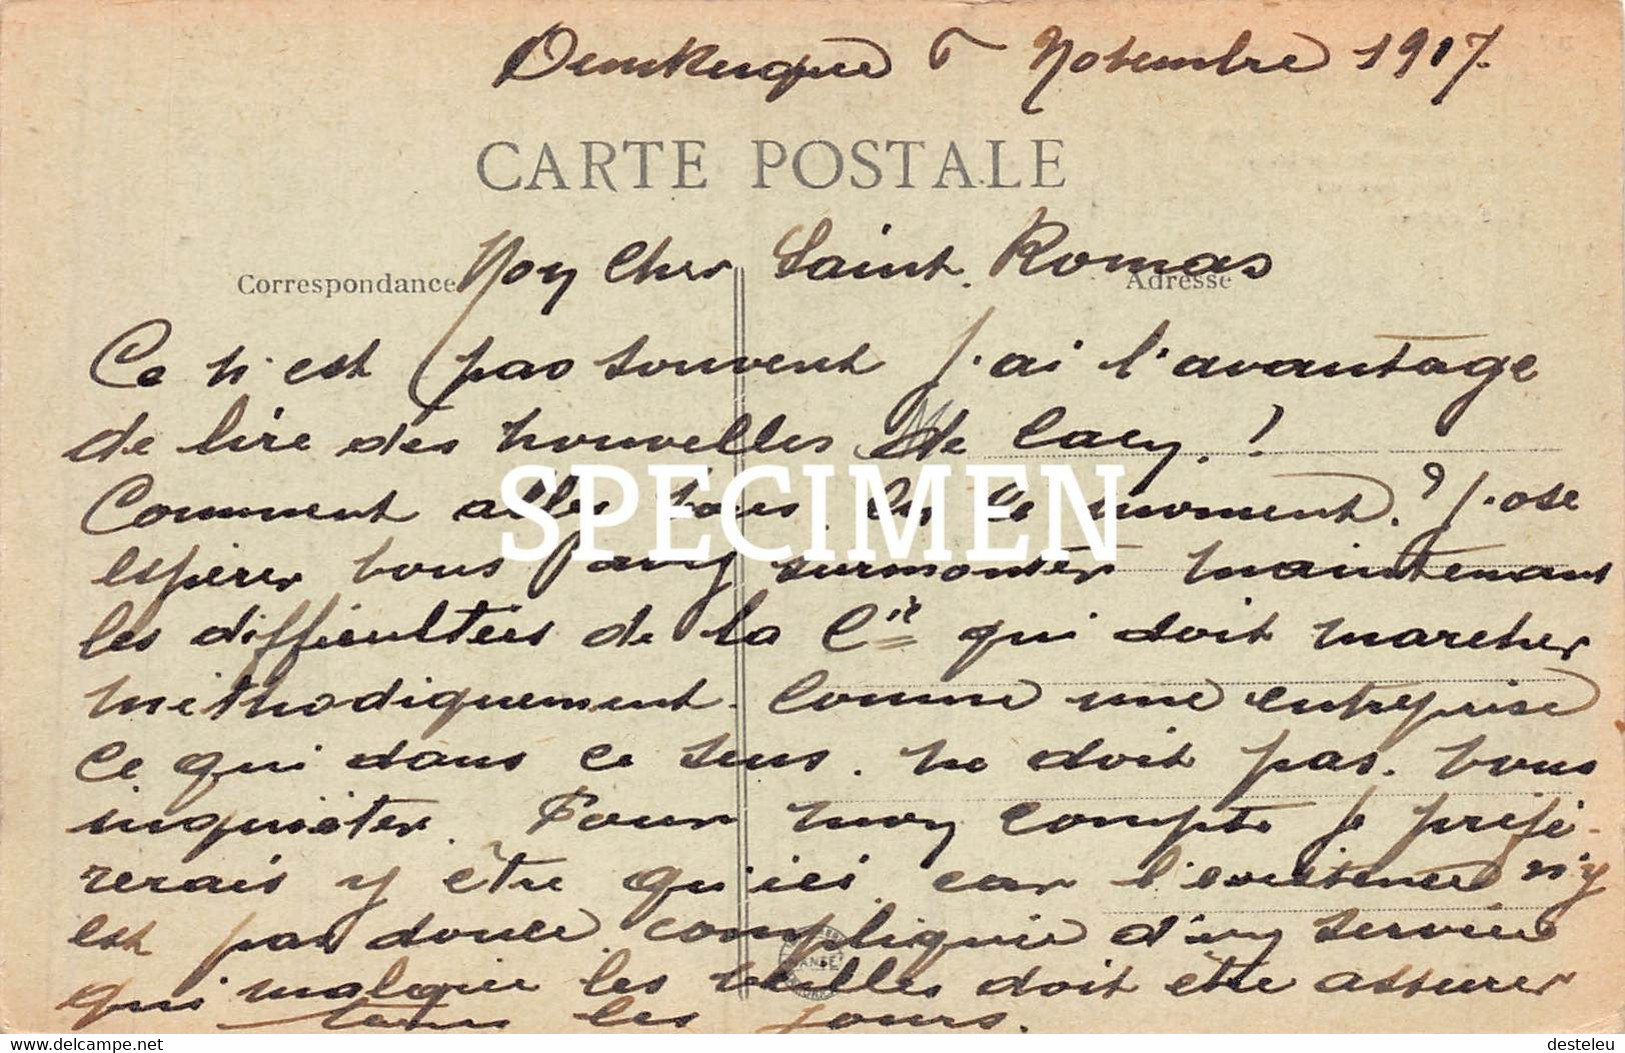 Dunkerque 6 Novembre 1917.
CARTE POSTALE
Moy Cher Saint. Romas
Correspondance
Adresse
Ce n'est pas souvent j'ai l'avantage
de lire des nouvelles de Cary.!
Comment allez vous en ce moment.? j'ose
espérer vous avez surmonter maintenant
les difficultées de la Cie qui doit marcher
méthodiquement. Comme une entreprise
Ce qui dans ce sens. ne doit pas. vous
inquiéter. Pour moy compte je préfé-
rerais y être qu'ici car l'existence n'y
est pas douce. compliquée d'uy service
qui malgrée les veilles doit être assurer
tous les jours.
SPECIMEN
delcampe.net
desteleu